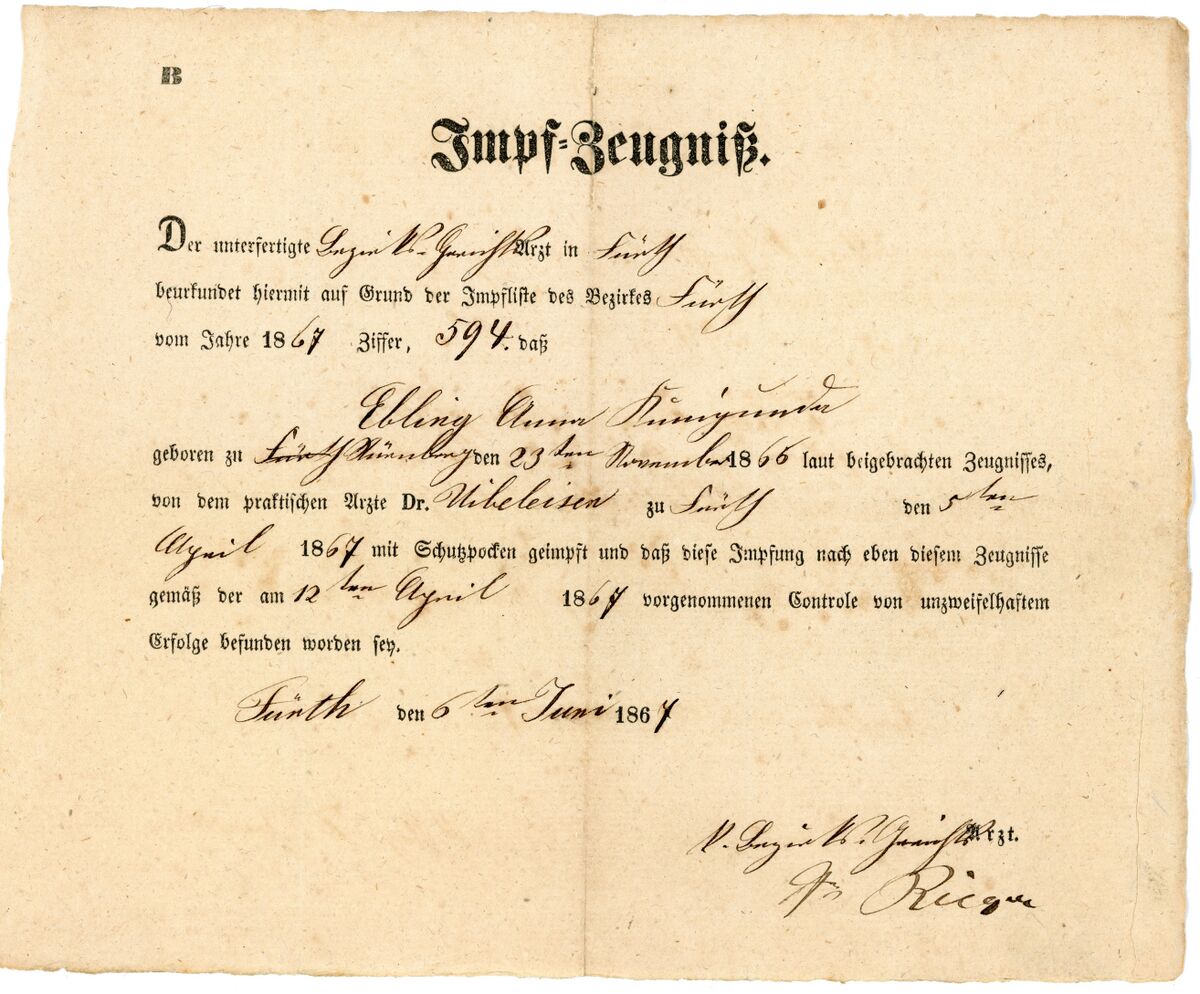 B
Impf-Zeugniß.
Der unterfertigte Bezirks-Gerichts Arzt in Fürth
beurkundet hiermit auf Grund der Impfliste des Bezirkes Fürth
vom Jahre 1867 Ziffer, 594. daß
Ebling Anna Kunigunda
geboren zu Fürth Nürnberg den 23ten November 1866 laut beigebrachten Zeugnisses,
von dem praktischen Arzte Dr. Uibeleisen zu Fürth den 5ten
April 1867 mit Schutzpocken geimpft und daß diese Impfung nach eben diesem Zeugnisse
gemäß der am 12ten April 1867 vorgenommenen Controle von unzweifelhaftem
Erfolge befunden worden sey.
Fürth den 6ten Juni 1867
k. Bezirks-Gerichts Arzt.